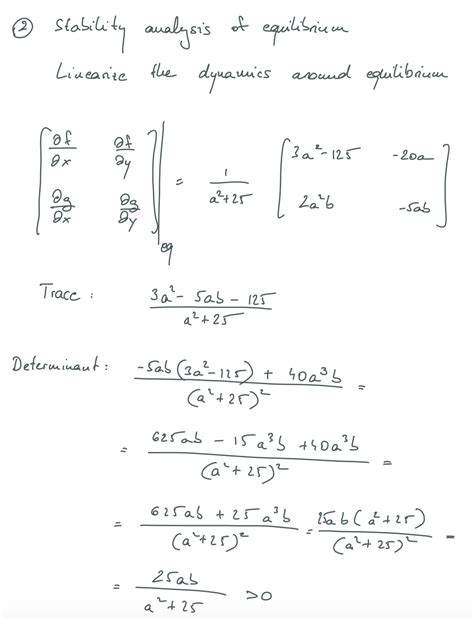 ② Stability analysis of equilibrium
Linearize the dynamics around equilibrium
[∂f/∂x ∂f/∂y; ∂g/∂x ∂g/∂y]|eq = 1/(a²+25) [3a²-125 -20a; 2a²b -5ab]
Trace : (3a² - 5ab - 125)/(a² + 25)
Determinant : (-5ab(3a²-125) + 40a³b)/(a²+25)² =
= (625ab - 15a³b + 40a³b)/(a² + 25)² =
= (625ab + 25a³b)/(a²+25)² = 25ab(a²+25)/(a²+25)² -
= 25ab/(a²+25) >0